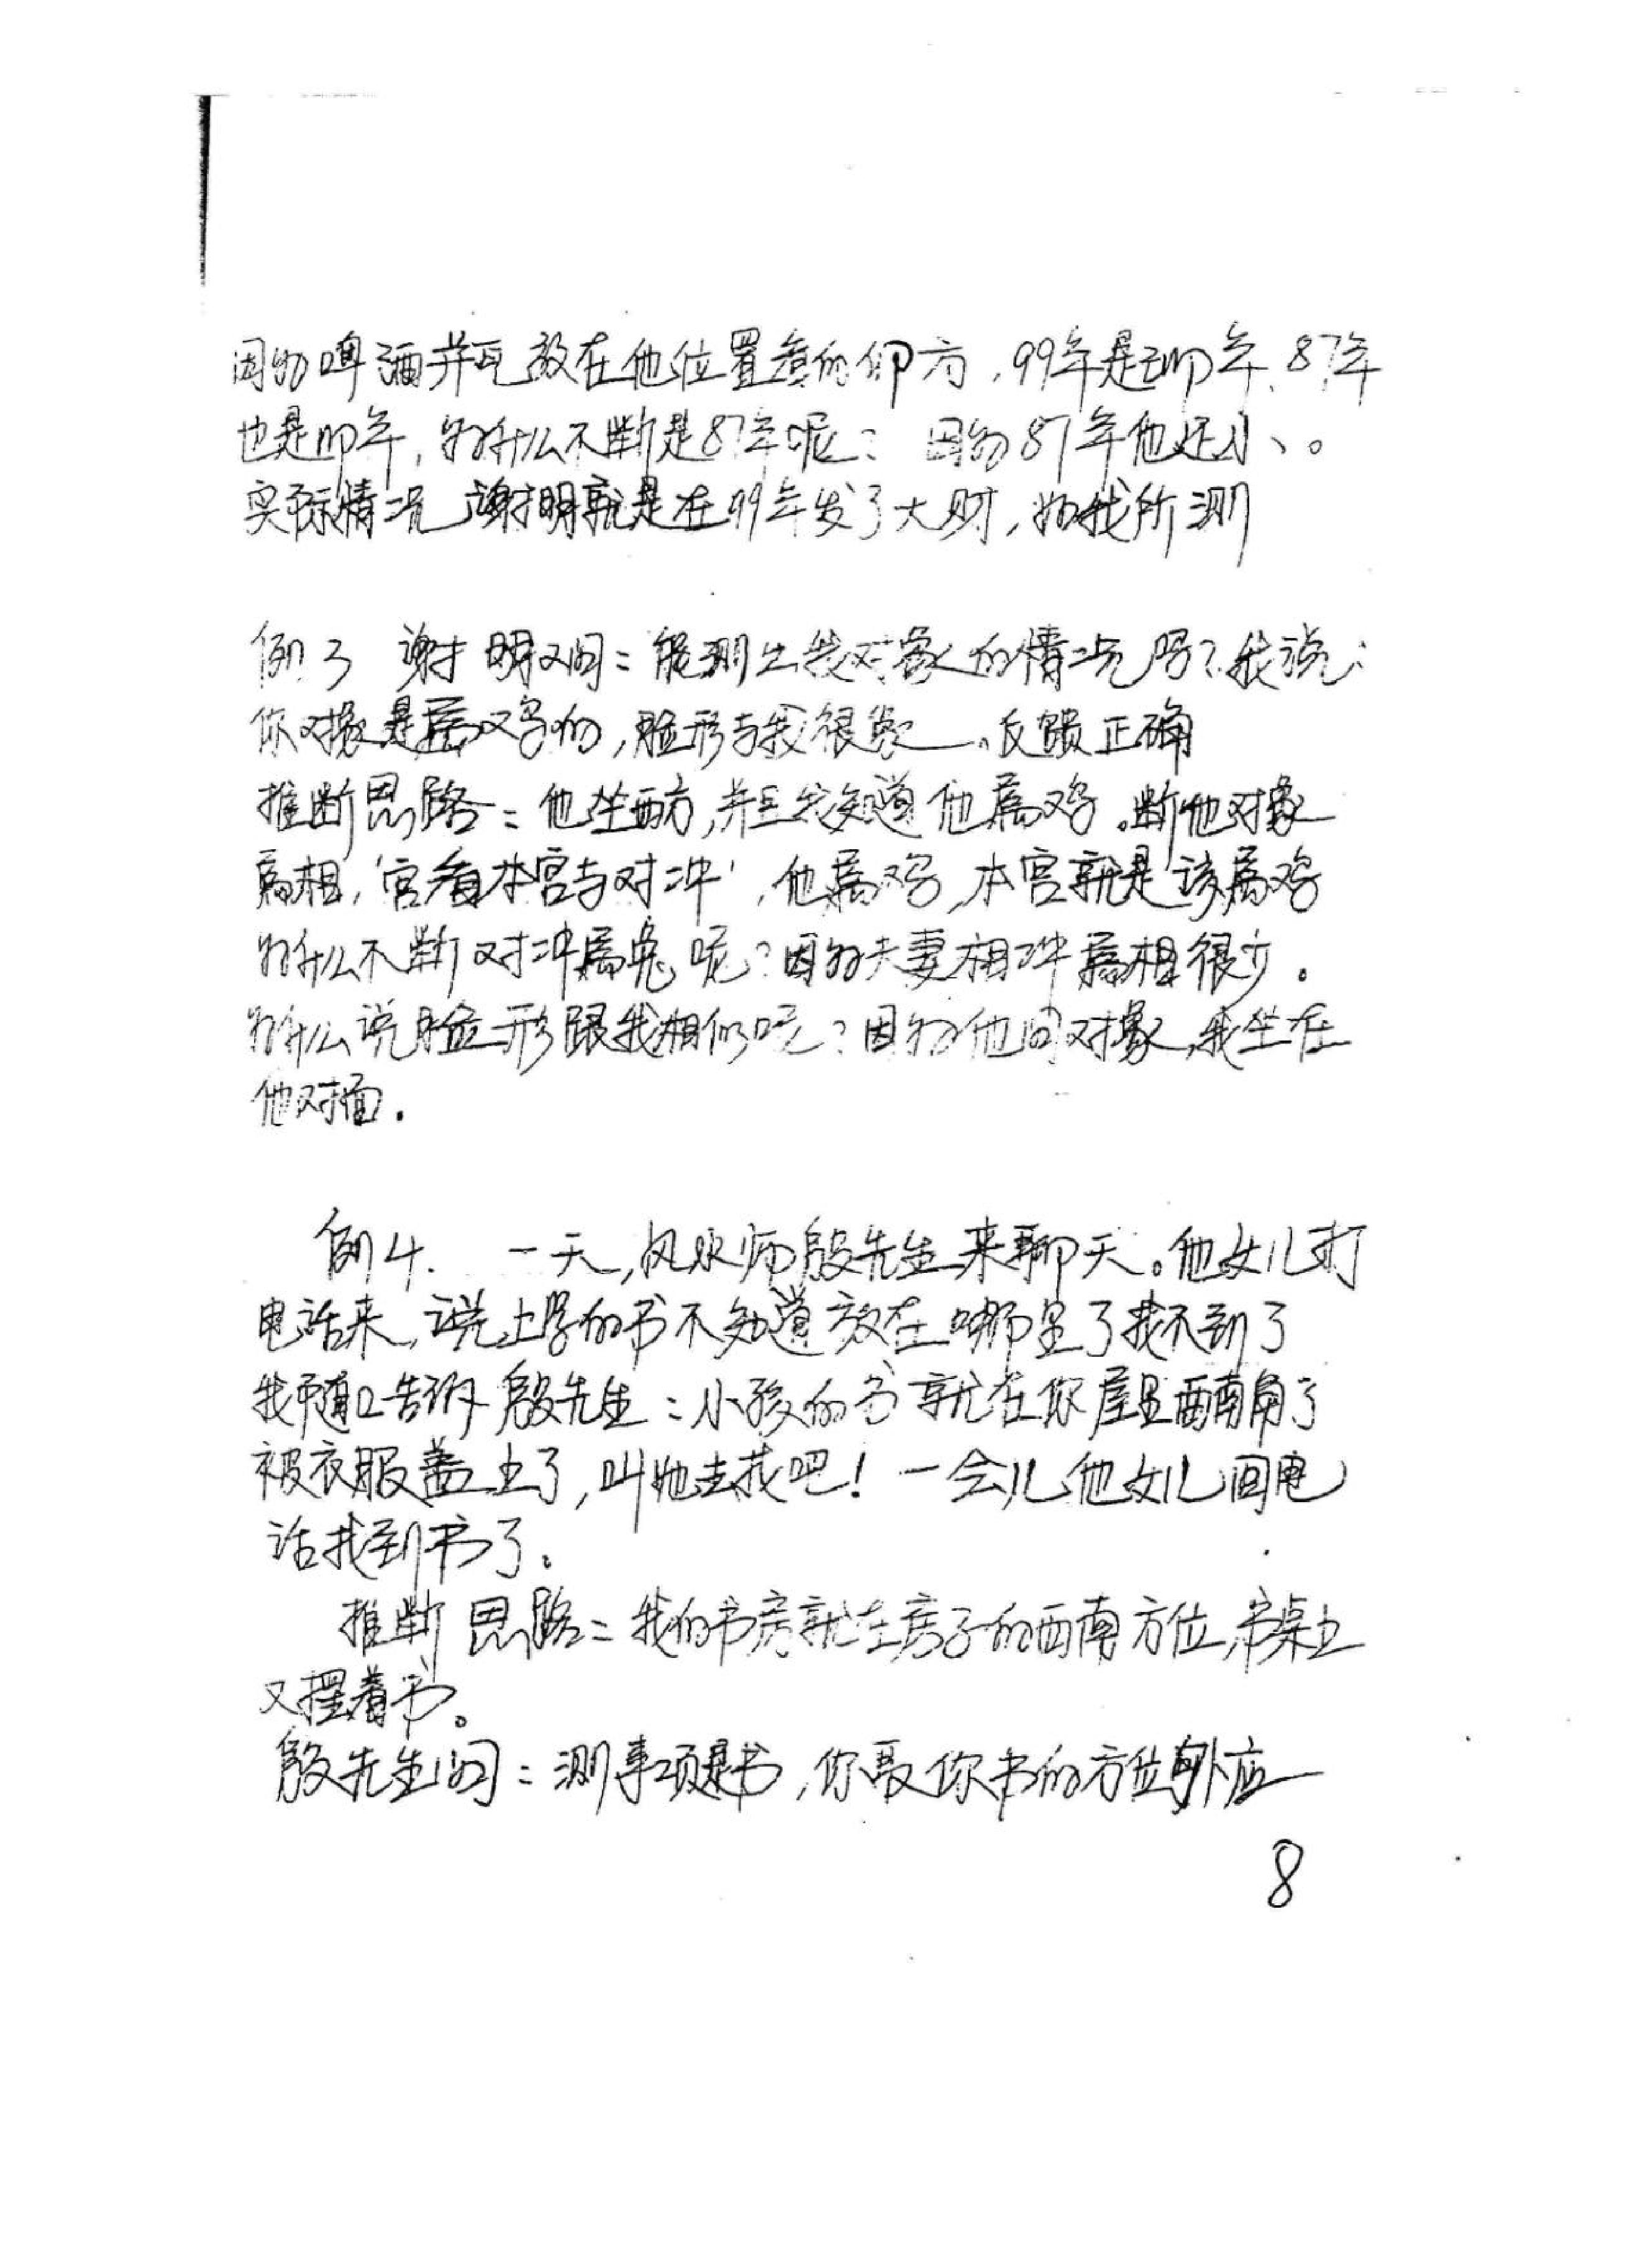 因为啤酒并且放在他位置度的卯方，99年是卯年、87年
也是卯年，为什么不断是87年呢：因为87年他还小、。
实际情况 谢明就是在99年发了大财，如我所测
例3 谢明又问：能测出我对象的情况吗？我说：
你对像是属鸡的，脸形与我很象。反馈正确
推断思路：他坐西方，并且我知道他属鸡。断他对象
属相，'宫看本宫与对冲'，他属鸡，本宫就是该属鸡
为什么不断对冲属兔呢？因为夫妻相冲属相很少。
为什么说脸形跟我相似呢？因为他问对象，我坐在
他对面.
例4. 一天，风水师殷先生来聊天。他女儿打
电话来，说上学的书不知道放在哪里了找不到了
我随口告诉殷先生：小孩的书就在你屋里西南角了
被衣服盖上了，叫她去找吧！一会儿他女儿回电
话找到书了。
推断思路：我的书房就在房子的西南方位，书桌上
又摆着书。
殷先生问：测事项是书，你取你书的方位外应
8